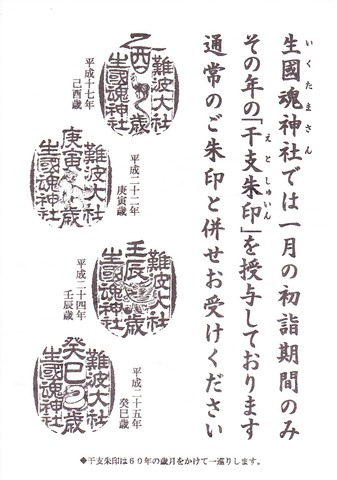 いくたまさん
生國魂神社では一月の初詣期間のみ
えとしゅいん
その年の「干支朱印」を授与しております
通常のご朱印と併せお受けください
難波大社
乙酉歳
生國魂神社
平成十七年
己酉歳
平成二十二年
庚寅歳
難波大社
庚寅歳
生國魂神社
難波大社
壬辰歳
生國魂神社
平成二十四年
壬辰歳
平成二十五年
癸巳歳
難波大社
癸巳歳
生國魂神社
◆干支朱印は６０年の歳月をかけて一巡りします。